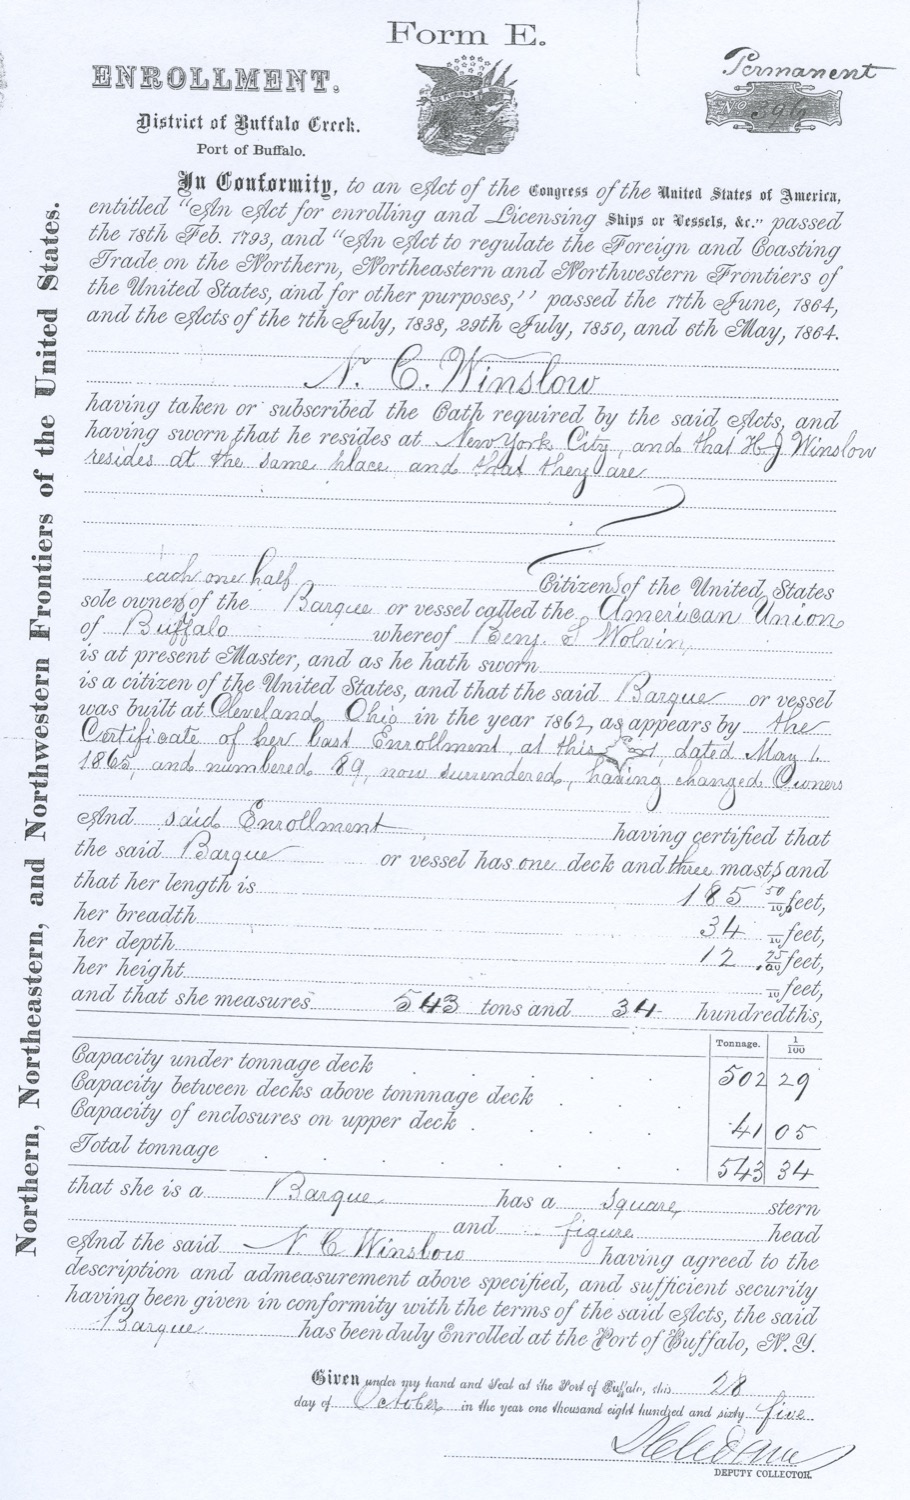 Form E.
ENROLLMENT.
Permanent
No 396
District of Buffalo Creek.
Port of Buffalo.
In Conformity, to an Act of the Congress of the United States of America,
entitled "An Act for enrolling and Licensing Ships or Vessels, &c." passed
the 18th Feb. 1793, and "An Act to regulate the Foreign and Coasting
Trade on the Northern, Northeastern and Northwestern Frontiers of
the United States, and for other purposes," passed the 17th June, 1864,
and the Acts of the 7th July, 1838, 29th July, 1850, and 6th May, 1864.
N. C. Winslow
having taken or subscribed the Oath required by the said Acts, and
having sworn that he resides at New York City, and that H J Winslow
resides at the same place and that they are
each one half Citizens of the United States
sole owners of the Barque or vessel called the American Union
of Buffalo whereof Benj. S Wolvin,
is at present Master, and as he hath sworn
is a citizen of the United States, and that the said Barque or vessel
was built at Cleveland, Ohio in the year 1862, as appears by the
Certificate of her last Enrollment, at this Port, dated May 1.
1865, and numbered 89, now surrendered, having changed Owners
And said Enrollment having certified that
the said Barque or vessel has one deck and three masts and
that her length is 185 50/100 feet,
her breadth 34 /10 feet,
her depth 12 .25/100 feet,
her height /10 feet,
and that she measures 543 tons and 34 hundredths,
Tonnage. 1/100
Capacity under tonnage deck 502 29
Capacity between decks above tonnnage deck
Capacity of enclosures on upper deck 41 05
Total tonnage 543 34
that she is a Barque has a square stern
and figure head
And the said N C Winslow having agreed to the
description and admeasurement above specified, and sufficient security
having been given in conformity with the terms of the said Acts, the said
Barque has been duly Enrolled at the Port of Buffalo, N. Y.
Given under my hand and Seal at the Port of Buffalo, this 28
day of October in the year one thousand eight hundred and sixty five
DEPUTY COLLECTOR.
Northern, Northeastern, and Northwestern Frontiers of the United States.